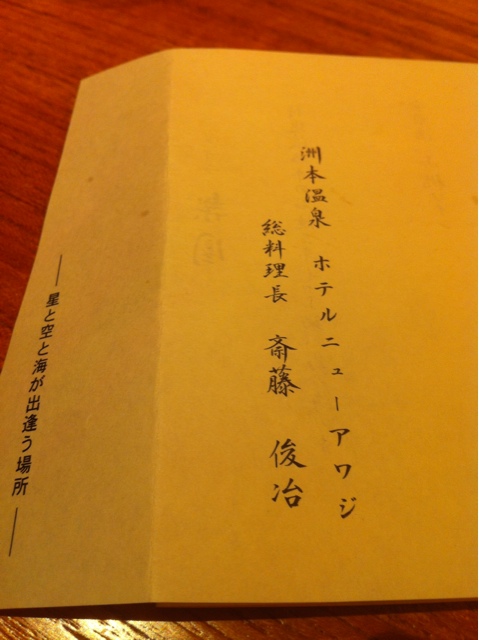 洲本温泉 ホテルニューアワジ
総料理長 斎藤 俊治
― 星と空と海が出逢う場所 ―